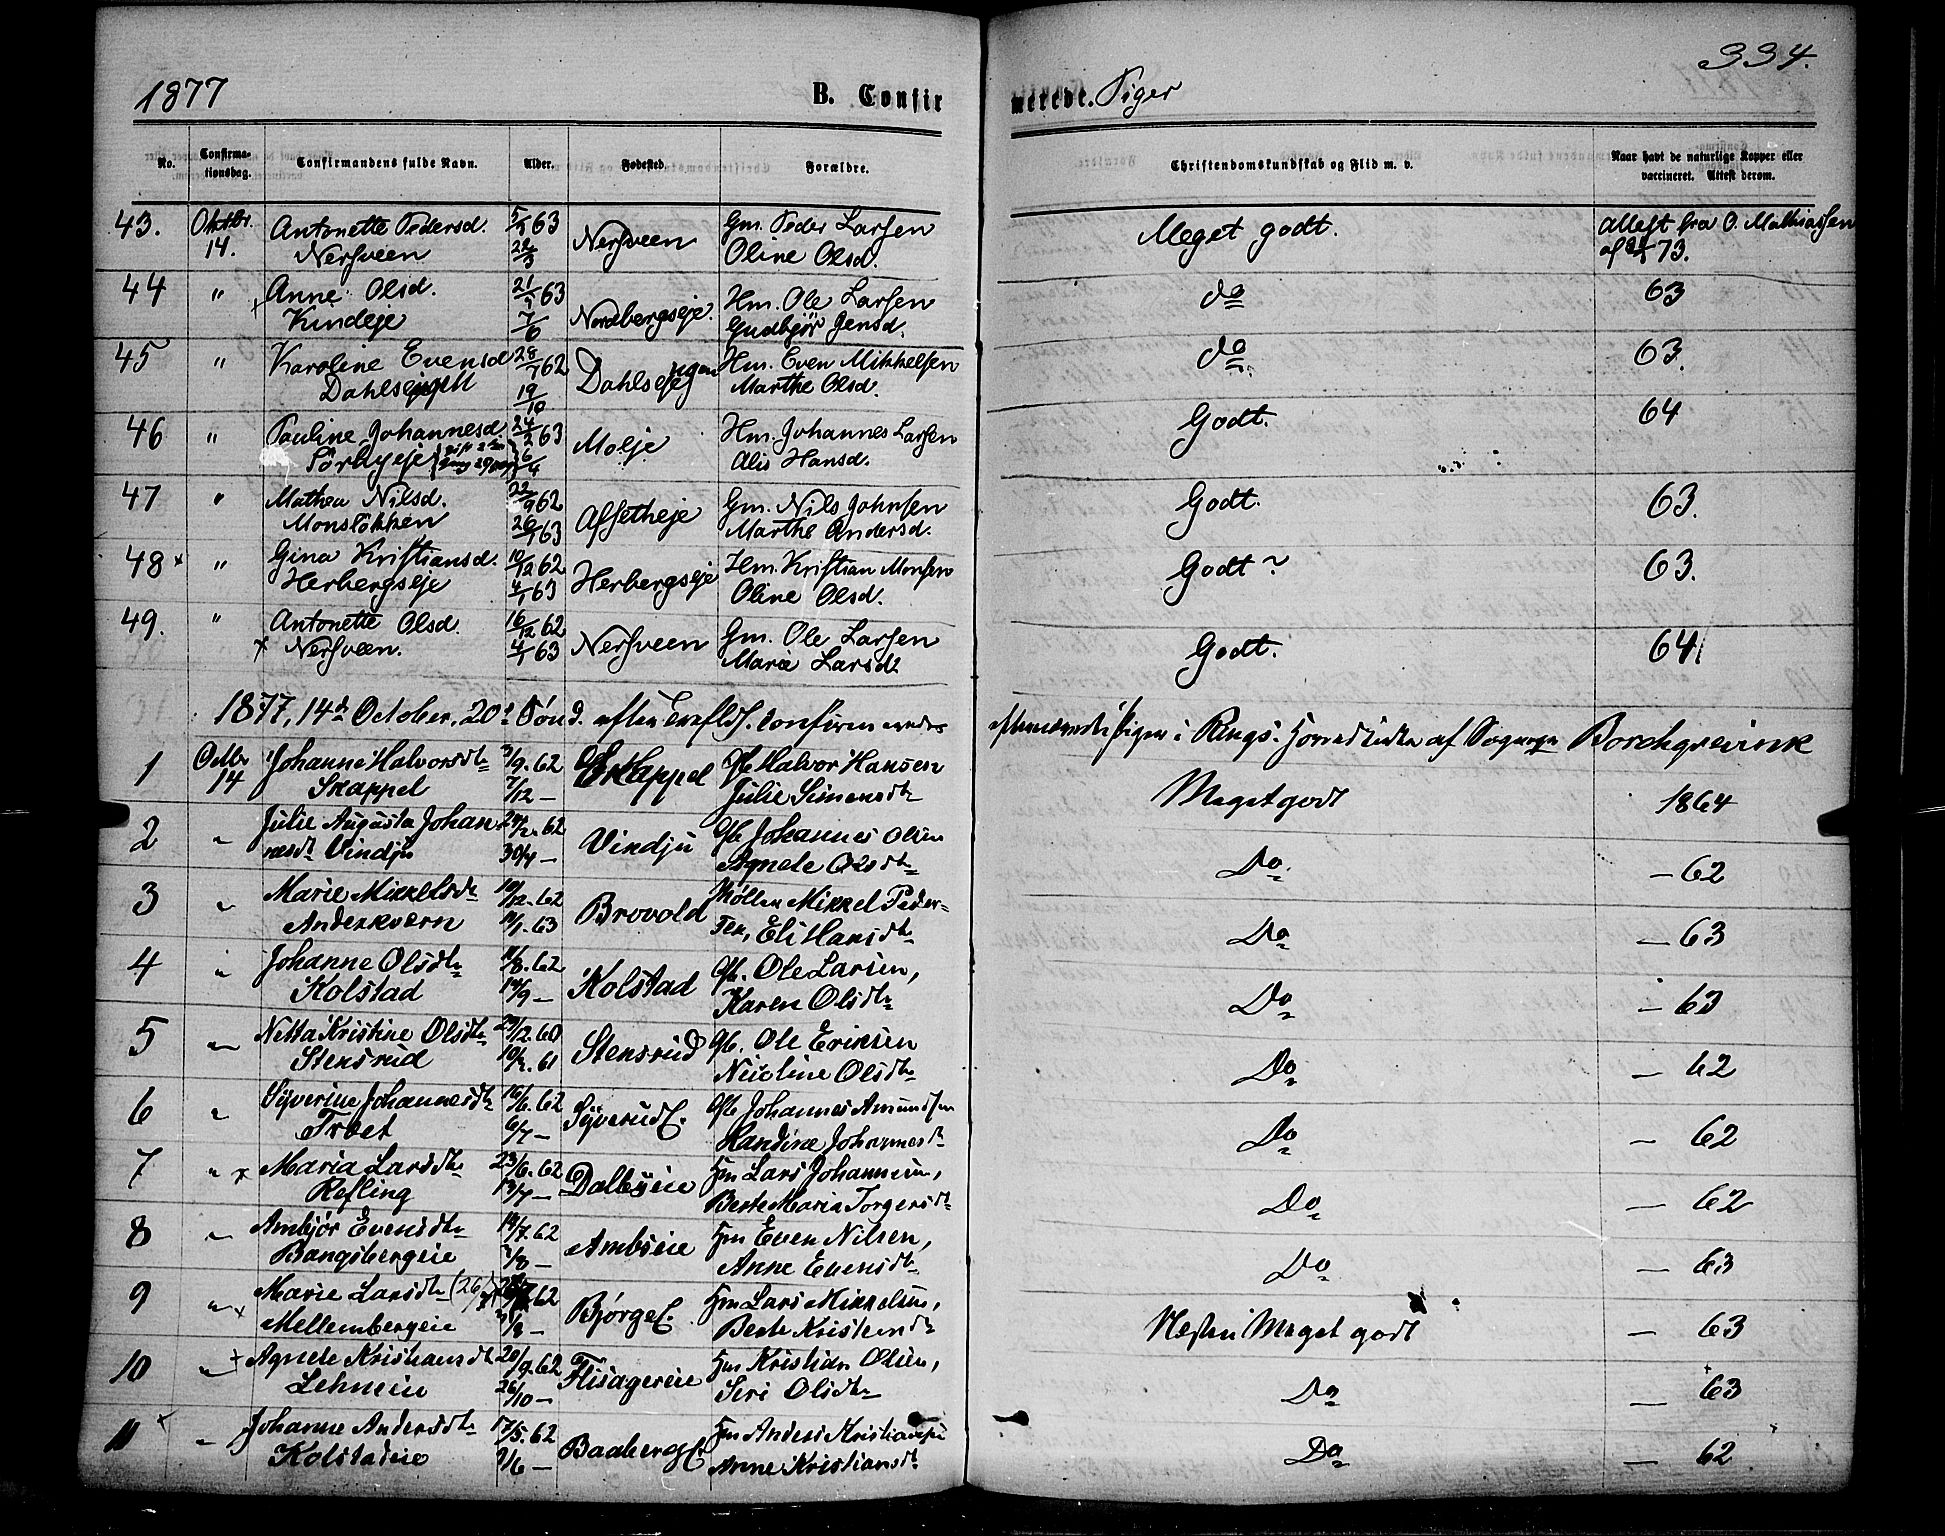 1877
B. Confir
merede. Piger
334.
No.
Confirma-
tionsdag.
Confirmandens fulde Navn.
Alder.
Fødested.
Forældre.
Christendomskundskab og Flid m. v.
Naar havt de naturlige Kopper eller
vaccineret. Attest derom.
43. Oktbr. Antonette Pedersd. 63 Gm. Peder Larsen
14. Nersveen Nersveen Oline Olsd.
Meget godt. Attest fra O. Mathiassen
af 73.
44 " Anne Olsd. 21/3 63 Nordbergseje. Hm. Ole Larsen do 63
Kindeje 7/6 Gudbjør Jensd.
45 " Karoline Evensd 62 Hm. Even Mikkelsen do 63.
19/10 Marthe Olsd.
46 " Pauline Johannesd 24/2 63 Molje Hm. Johannes Larsen Godt. 64
Sørbyeje 6/4 Alis Hansd.
47 " Mathea Nilsd. 22/9 62 Assetheje Gm. Nils Johnsen Godt. 63.
Monsløkken 63 Marthe Andersd.
48 x " Gina Kristiansd. 10/12 62 Herbergseje Hm. Kristian Monsen Godt? 63.
Herbergseje 4/1 63 Oline Olsd.
49. " Antonette Olsd. 16/12 62 Nersveen Gm. Ole Larsen Godt. 64
x Nersveen. 4/1 63 Marie Larsd.
1877, 14de October, 20de Sønd. efter Trefoldh. confirmeredes
i Rings: af Sognepr Borchgrevink
1 Octbr 14 Johanne Halvorsdtr 3/9. 62 Skappel Gb Halvor Hansen Megetgodt 1864
Skappel 7/12 — Julie Simensdtr
2 " Julie Augusta Johan- 62 Vindju Gb Johannes Olsen Do — 62
nesdt Vindju 30/4 — Agnete Olsdtr
3 " Marie Mikkelsdtr 10/12. 62 Brovold Møller Mikkel Peder- Do — 63
Anderkværn /1. 63 sen, Eli Hansdtr
4 " Johanne Olsdtr 11/8. 62 Kolstad Gb. Ole Larsen, Do — 63
Kolstad 14/9 — Karen Olsdtr
5 " Netta Kristine Olsdtr 29/12. 60 Stensrud Gb. Ole Eriksen Do — 62
Stensrud 10/2. 61 Nicoline Olsdtr
6 " Syverine Johannesdtr 16/6. 62 Syverud Gb Johannes Amundsen Do — 62
Troet 6/7 — Randine Johannesdt
7 " x Maria Larsdtr 23/6. 62 Dalbseie Hm Lars Johannesen, Do — 62
Refling 13/7 — Berte Maria Torgersdtr
8 " Ambjør Evensdtr 19/7. 62 Ambseie Hm Even Nilsen, Do — 63
Bangsbergeie /8 — Anne Evensdtr
9 " x Marie Larsdtr (26/7) 62 Bjørge Hm Lars Mikkelsen, Næsten Meget godt — 63
Mellembergeie /8 — Berte Kristensdtr
10 " + Agnete Kristiansdt 20/9. 62 Flisagereie Hm Kristian Olsen, Do — 63
Lehneie 26/10 — Seri Olsdtr
11 x " Johanne Andersdtr 17/5. 62 Baaberg Hm Anders Kristiansen Do — 62
Kolstadeie 9/6 — Anne Kristiansdt